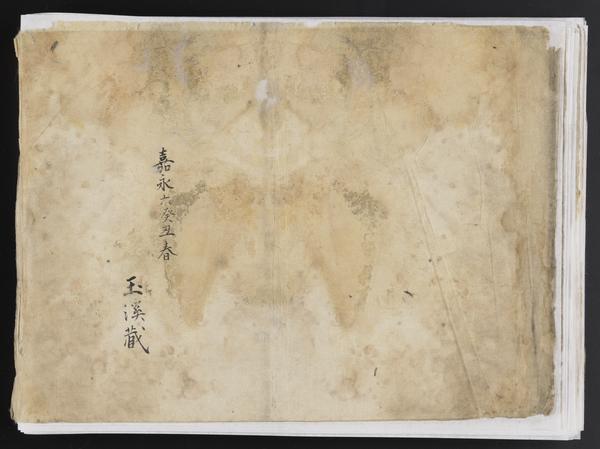 嘉永六癸丑春
玉溪藏